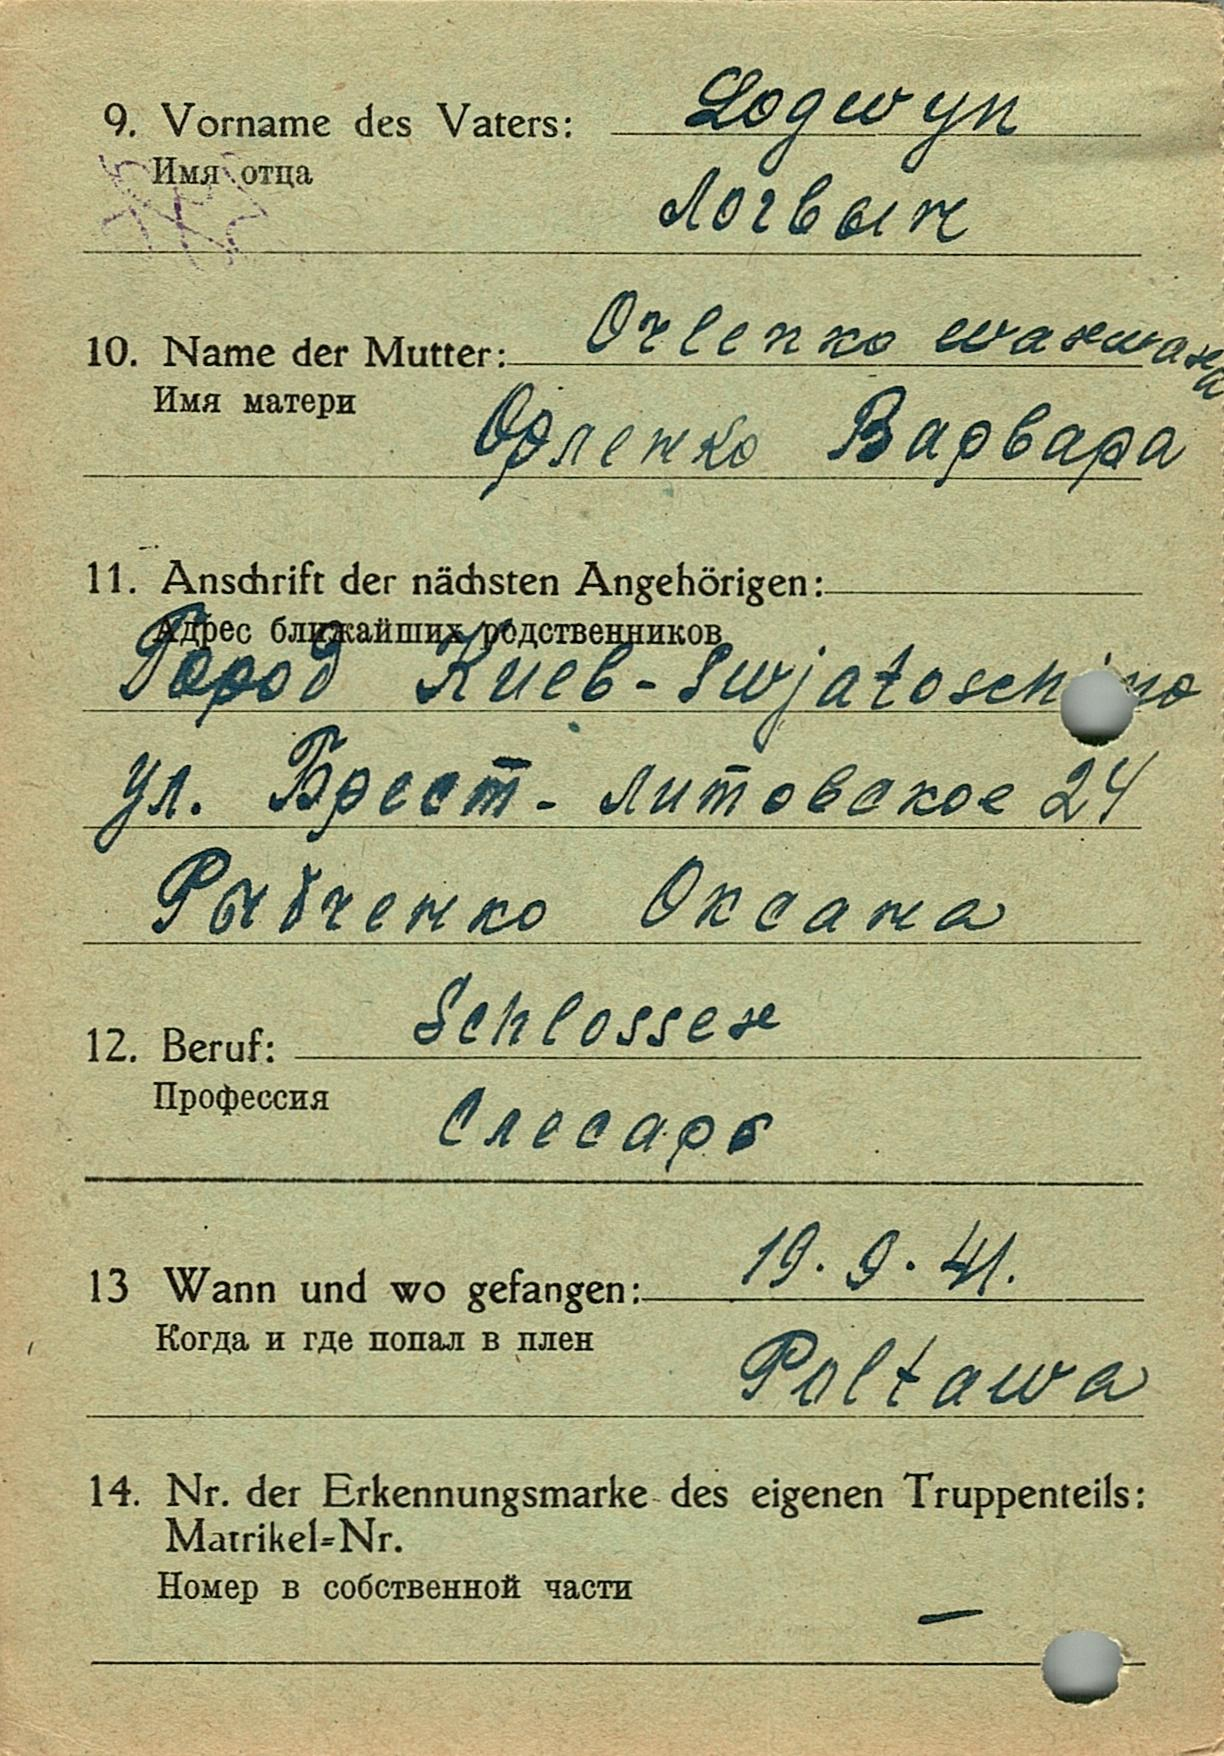 9. Vorname des Vaters: Logwyn
Имя отца
Логвын
10. Name der Mutter: Orlenko Warwara
Имя матери
Орленко Варвара
11. Anschrift der nächsten Angehörigen:
Адрес ближайших родственников
Город Киев-Swjatoschino
ул. Брест-литовское 24
Рыбченко Оксана
12. Beruf: Schlosser
Профессия
Слесарь
13 Wann und wo gefangen: 19.9.41.
Когда и где попал в плен
Poltawa
14. Nr. der Erkennungsmarke des eigenen Truppenteils:
Matrikel=Nr.
Номер в собственной части
—